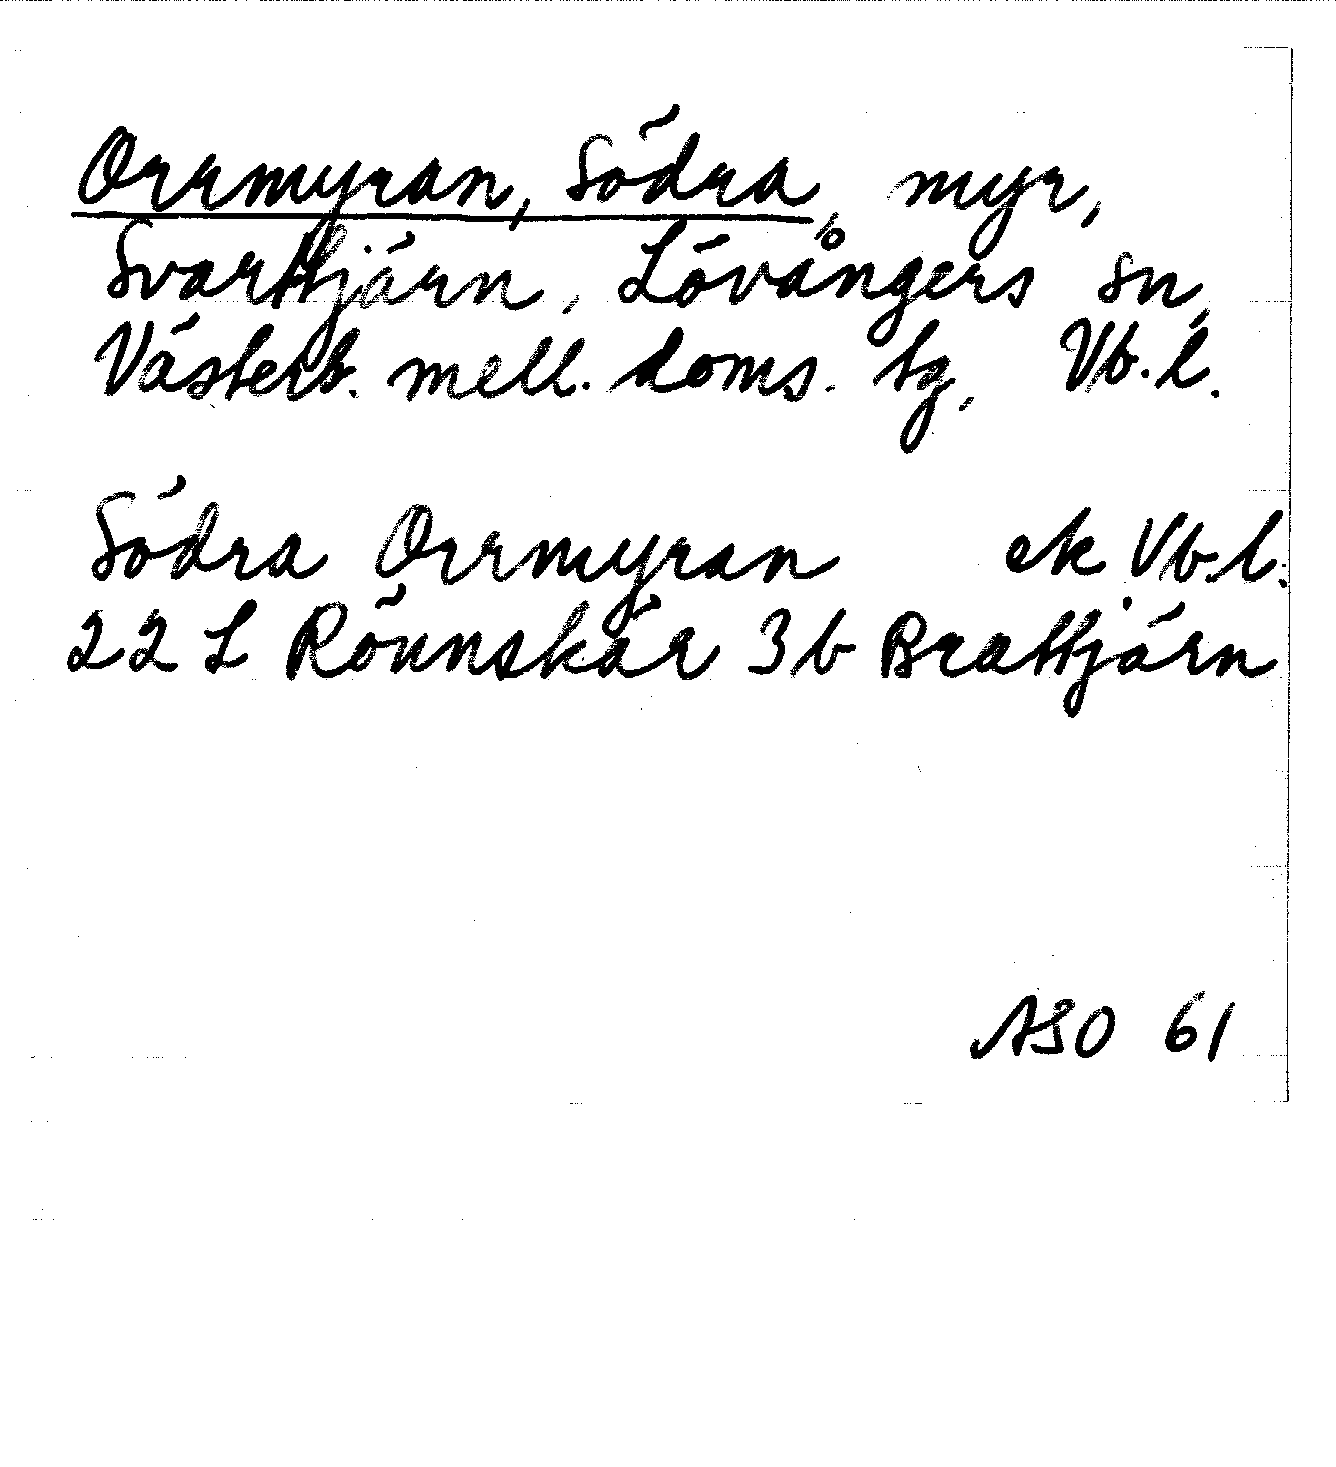 Orrmyran, Södra, myr,
Svarttjärn, Lövångers sn,
Västerb. mell. doms. tg, Vb.l.
Södra Orrmyran ek Vb.l.
22 L Rönnskär 3b Brattjärn
ASO 61